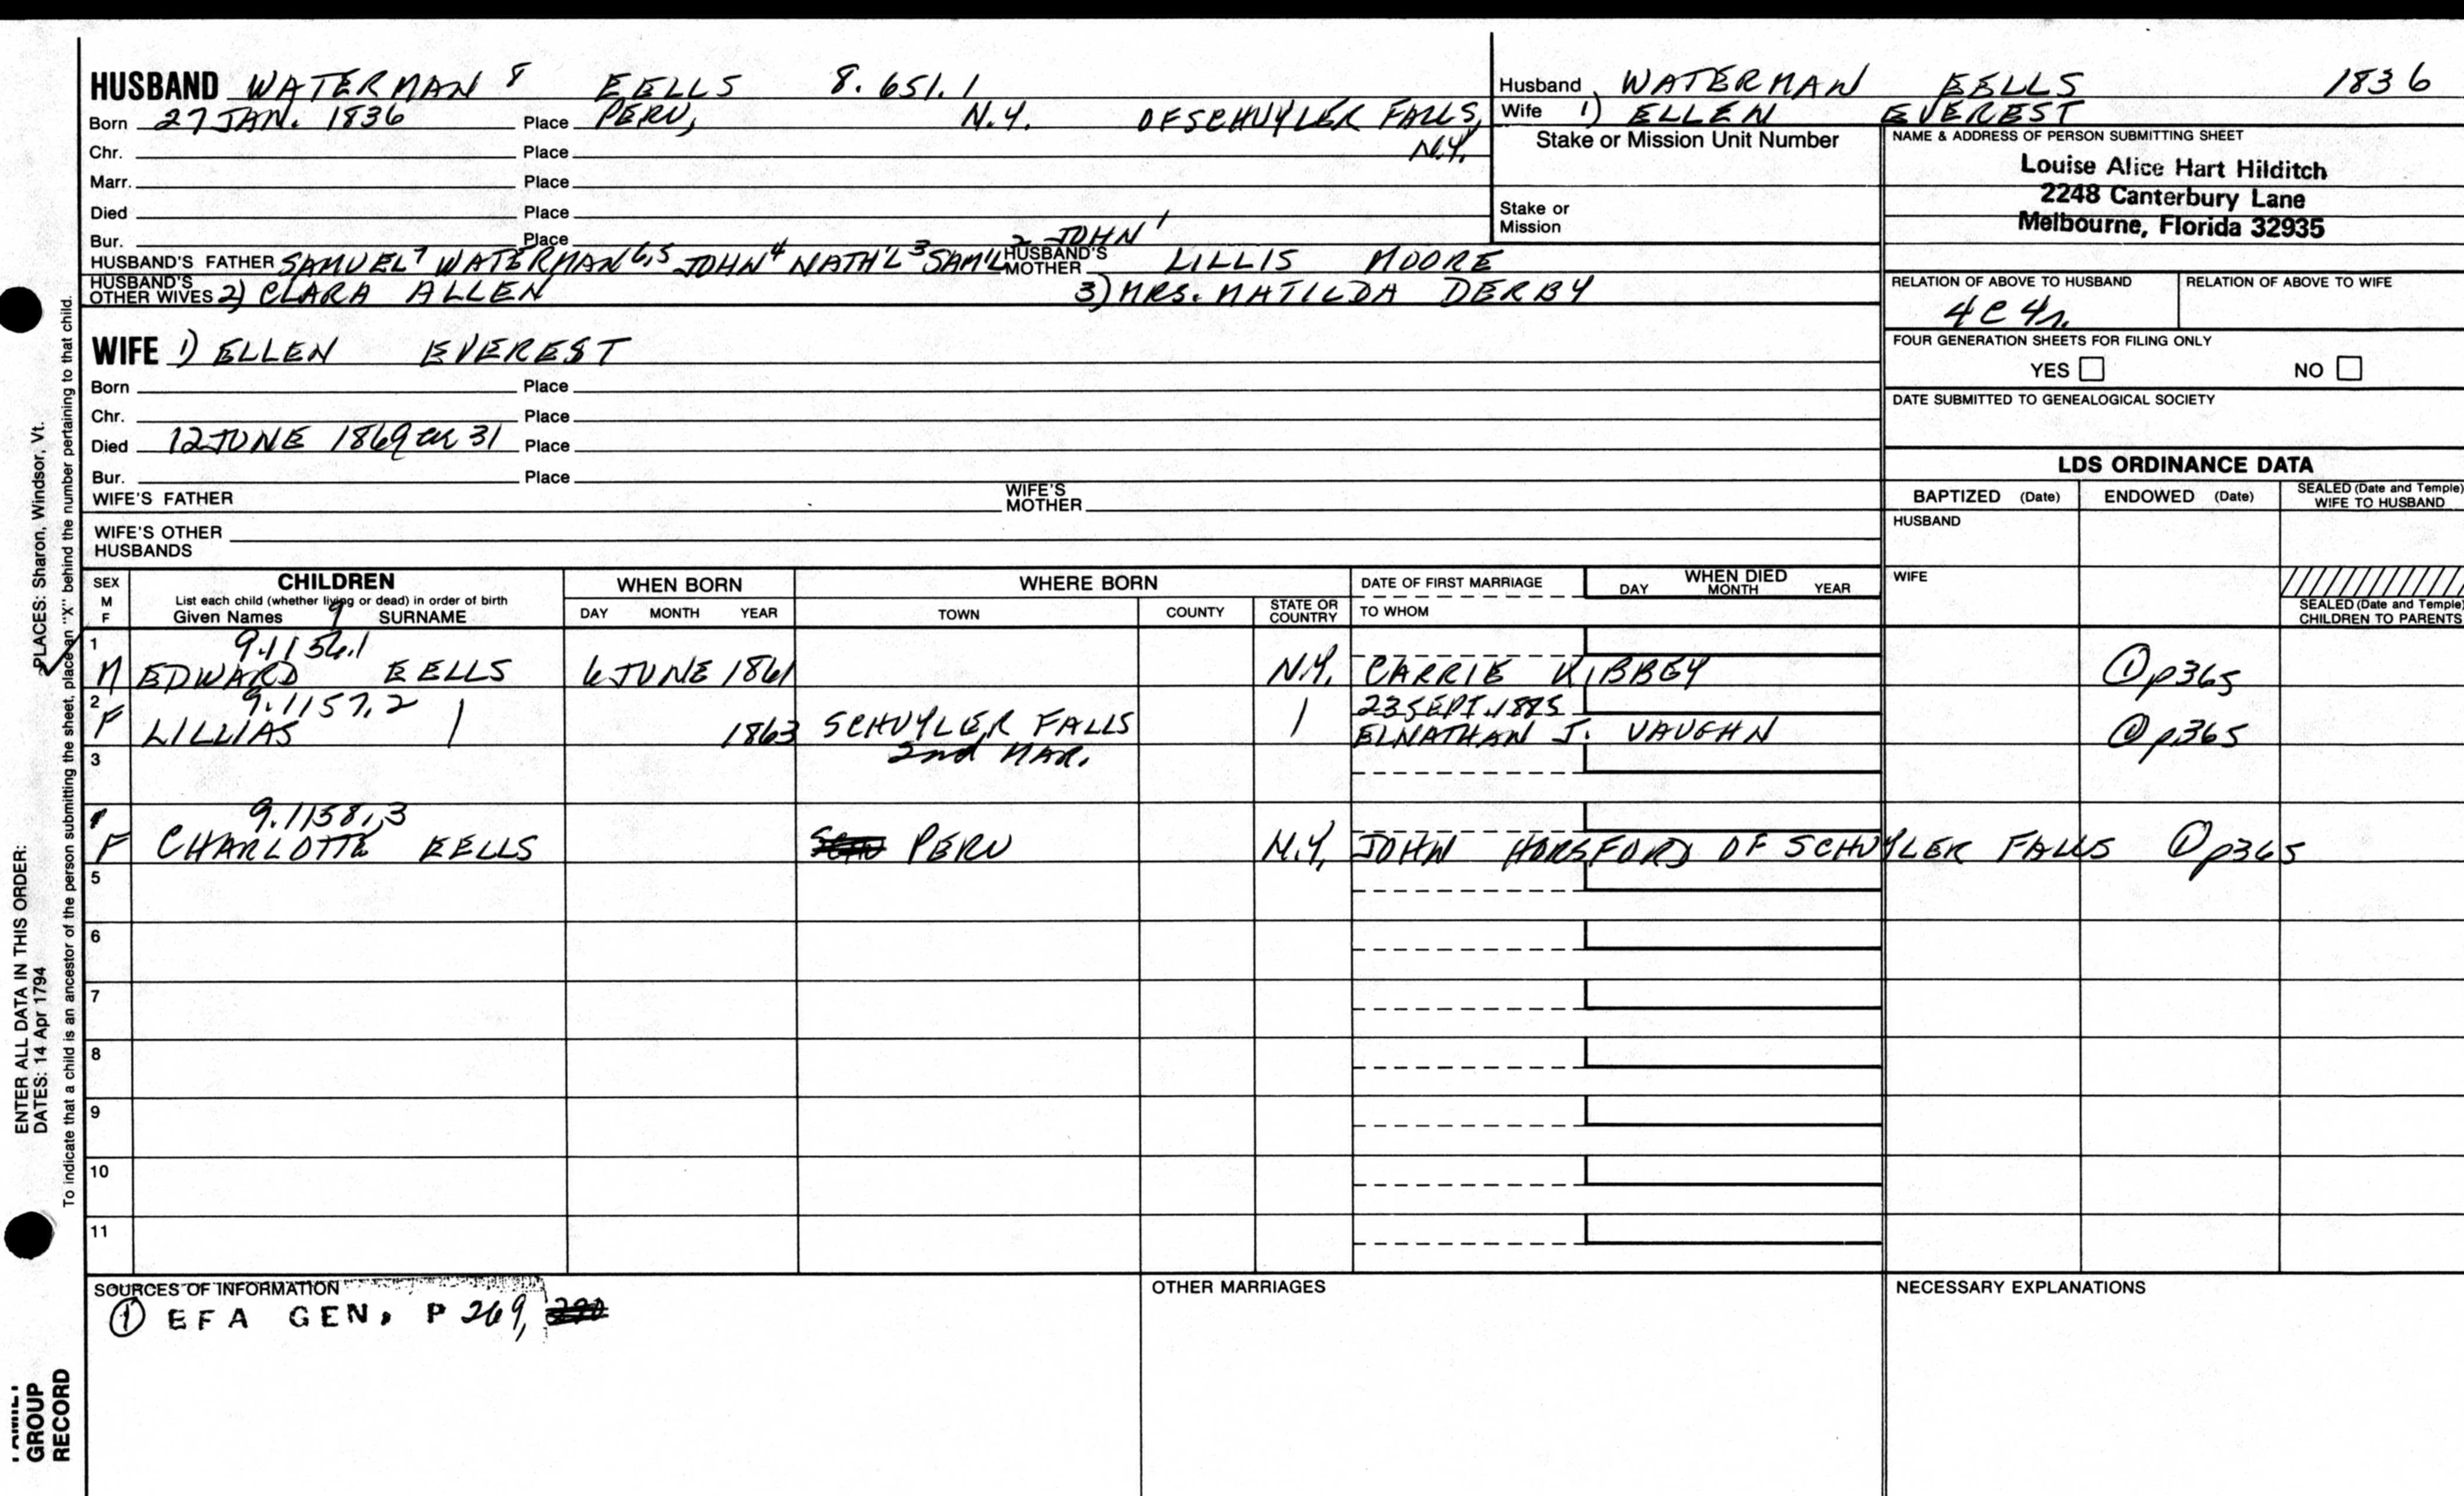 HUSBAND WATERMAN 8 EELLS 8.651.1
Born 27 JAN. 1836 Place PERU, N.Y. OF SCHUYLER FALLS,
Chr. Place N.Y.
Marr. Place
Died Place
Bur. Place 2 JOHN 1
HUSBAND'S FATHER SAMUEL 7 WATERMAN 6,5 JOHN 4 NATH'L 3 SAM'L HUSBAND'S MOTHER LILLIS MOORE
HUSBAND'S OTHER WIVES 2) CLARA ALLEN 3) MRS. MATILDA DERBY
WIFE 1) ELLEN EVEREST
Born Place
Chr. Place
Died 12 JUNE 1869 ae 31 Place
Bur. Place
WIFE'S FATHER WIFE'S MOTHER
WIFE'S OTHER HUSBANDS
Husband WATERMAN EELLS 1836
Wife 1) ELLEN EVEREST
Stake or Mission Unit Number
Stake or Mission
NAME & ADDRESS OF PERSON SUBMITTING SHEET
Louise Alice Hart Hilditch
2248 Canterbury Lane
Melbourne, Florida 32935
RELATION OF ABOVE TO HUSBAND RELATION OF ABOVE TO WIFE
4C4r.
FOUR GENERATION SHEETS FOR FILING ONLY
YES NO
DATE SUBMITTED TO GENEALOGICAL SOCIETY
LDS ORDINANCE DATA
BAPTIZED (Date) ENDOWED (Date) SEALED (Date and Temple) WIFE TO HUSBAND
HUSBAND
WIFE
SEALED (Date and Temple) CHILDREN TO PARENTS
SEX M F CHILDREN WHEN BORN WHERE BORN DATE OF FIRST MARRIAGE WHEN DIED
List each child (whether living or dead) in order of birth
Given Names 9 SURNAME DAY MONTH YEAR TOWN COUNTY STATE OR COUNTRY TO WHOM DAY MONTH YEAR
1 9.1156.1
M EDWARD EELLS 6 JUNE 1861 N.Y. CARRIE KIBBEY ① p365
2 9.1157.2 23 SEPT. 1885
F LILLIAS | 1863 SCHUYLER FALLS | ELNATHAN J. VAUGHN ① p365
3 2nd MAR.
9.1158.3
F CHARLOTTE EELLS PERU N.Y. JOHN HORSFORD OF SCHUYLER FALLS ① p365
5
6
7
8
9
10
11
SOURCES OF INFORMATION OTHER MARRIAGES NECESSARY EXPLANATIONS
① EFA GEN, P 269,
ENTER ALL DATA IN THIS ORDER:
DATES: 14 Apr 1794 PLACES: Sharon, Windsor, Vt.
To indicate that a child is an ancestor of the person submitting the sheet, place an "X" behind the number pertaining to that child.
FAMILY
GROUP
RECORD